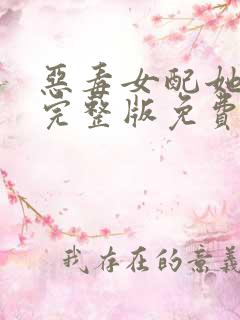 惡毒女配她
完整版免費
我存在的意義